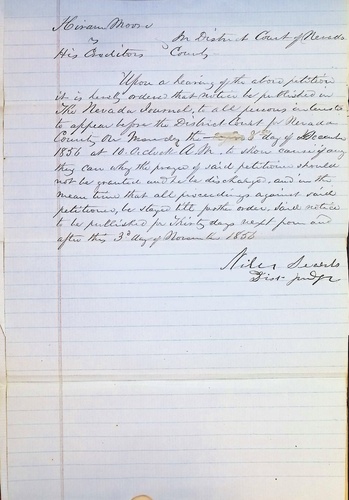 Hiram Moore
vs
In District Court of Nevada
His Creditors County
Upon a hearing of the above petition
it is hereby ordered that notice be published in
The Nevada Journal, to all persons interested
to appear before the District Court for Nevada
County on Monday the 3d day of December
1856 at 10 O'clock A.M. to show cause if any
they can why the prayer of said petitioner should
not be granted and he be discharged, and in the
mean time that all proceedings against said
petitioner, be stayed till further order. Said notice
to be published for Thirty days next from and
after this 3d day of November 1856
Niles Searls
Dist. Judge